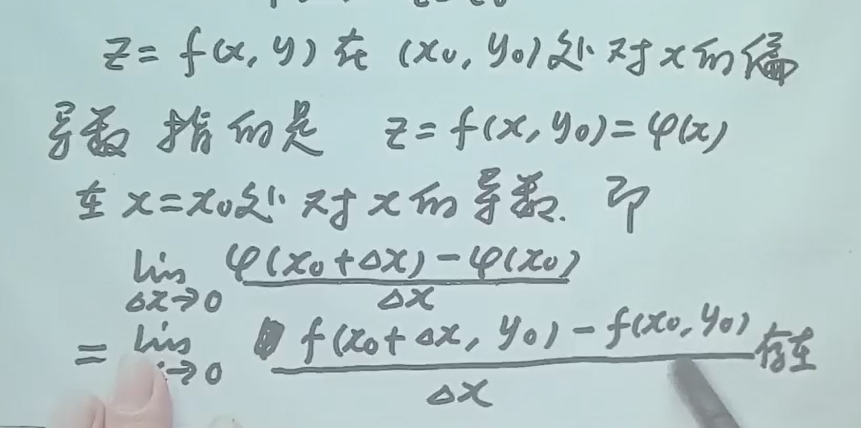 z=f(x,y)在(x₀,y₀)处对x的偏
导数指的是 z=f(x,y₀)=φ(x)
在x=x₀处对x的导数.即
lim Δx→0 (φ(x₀+Δx)-φ(x₀))/Δx
=lim →0 (f(x₀+Δx,y₀)-f(x₀,y₀))/Δx 存在